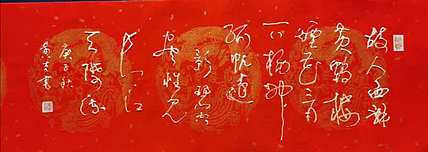 故人西辞
黄鹤楼
烟花三月
下扬州
孤帆远
影碧空
尽惟见
长江
天际流
庚子秋